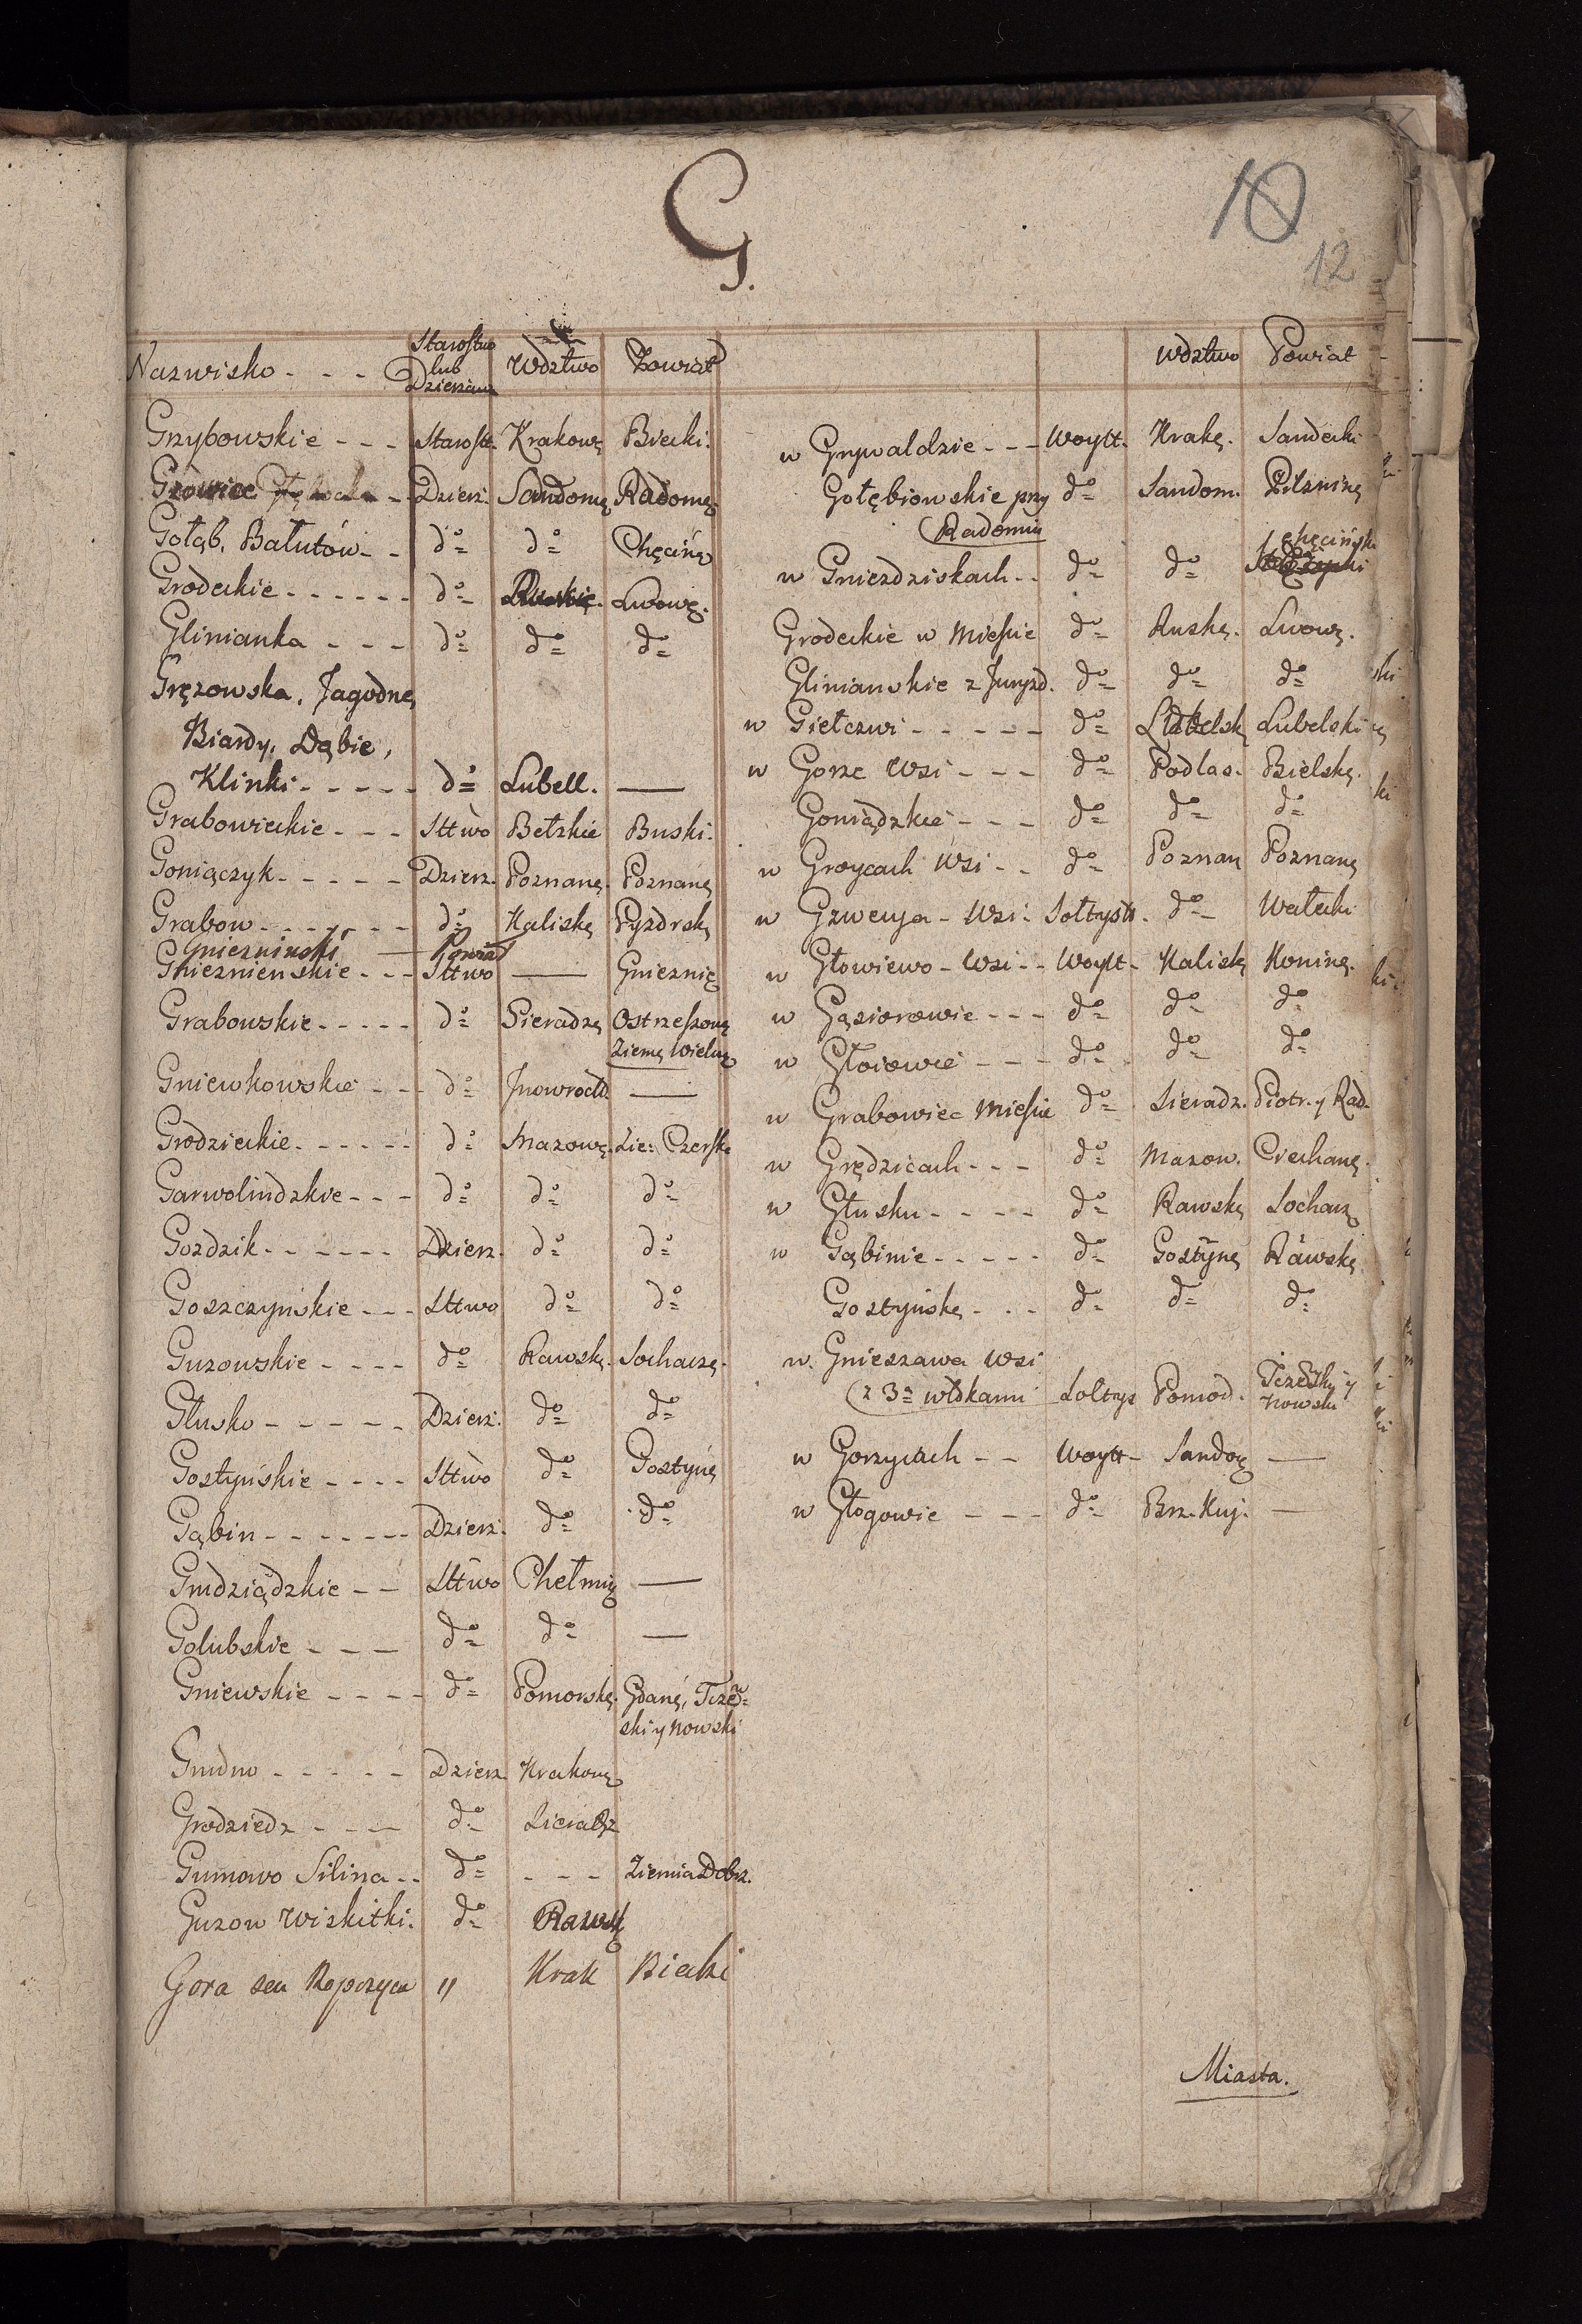 G.
10
12
Nazwisko - - - Starostwo lub Dzierżawa Wdztwo Powiat
Grzybowskie - - - Starost. Krakowę Biecki.
Gzowice - Dzierż. Sandomę Radomę
Gołąb, Bałutów - - do Chęcinę
Grodeckie - - - - - - do Ruskie. Lwowę.
Glinianka - - - do do do
Gręzowska, Jagodne,
Biardy, Dąbie,
Klinki - - - - - do Lubell. —
Grabowieckie - - - Sttwo Bełzkie Buski.
Goniączyk - - - - - Dzierz. Poznanę. Poznanę
Grabow - - - - - - do Kaliskę Pyzdrskę
Gniezninski — Powiat
Gnieznienskie - - - Sttwo — Gnieznię
Grabowskie - - - - - do Sieradzę Ostrzeszonę
Ziemę Wieluę
Gniewkowskie - - - do Jnowrocłł. —
Grodzieckie - - - - - do Mazowę. Zie: Czerskę
Garwolindzkie - - - do do do
Gozdzik - - - - - - Dzierz. do do
Goszczyńskie - - - Sttwo do do
Guzowskie - - - - do Rawskę. Sochaczę.
Głusko - - - - - Dzierż. do do
Gostyńskie - - - - Sttwo do Gostynę
Gąbin - - - - - - - Dzierż. do do
Grudziądzkie - - Sttwo Chełmię —
Golubskie - - - do do —
Gniewskie - - - - do Pomorskę. Gdanę, Tczew=
ski y Nowski
Grudno - - - - - Dzierz Krakowę
Grodziedz - - - - do Sieradz
Gumowo Silina - - do - - - Ziemia Dobrz.
Guzow Wiskitki. do Rawsk
Gora seu Ropczyca " Krak Biecki
Wdztwo Powiat
w Grywaldzie - - - Woytt. Krakę. Sandecki
Gołębiowskie przy do Sandom. Pilznine
Radomiu
w Gniezdziskach - - do do chęcińsk
Grodeckie w Mieście do Ruskę. Lwowę.
Glinianskie z Juryzd. do do do
w Giełczwi - - - - - do Lubelsk Lubelski
w Gorze Wsi - - - do Podlas. Bielskę.
Goniądzkie - - - do do do
w Groycach Wsi - - do Poznan Poznanę
w Gzweyja - Wsi - Sołtystt. do Wałecki
w Głowiewo - Wsi - - Woytt - Kaliskę Koninę.
w Gąsiorowie - - - do do do
w Głoiowie - - - do do do
w Grabowiec Mieście do Sieradz. Piotr. y Rad.
w Grędzicach - - - do Mazow. Ciechanę.
w Głusku - - - - do Rawskę Sochacz
w Gąbinie - - - - - do Gostynę Rawskę
Gostyńskę - - - do do do
w. Gnieszawa Wsi
z 3a włókami Soltys Pomod. Tczewsky y
Nowski
w Gorzycach - - Woytt - Sandoę —
w Głogowie - - - do Brz. Kuj. —
Miasta.